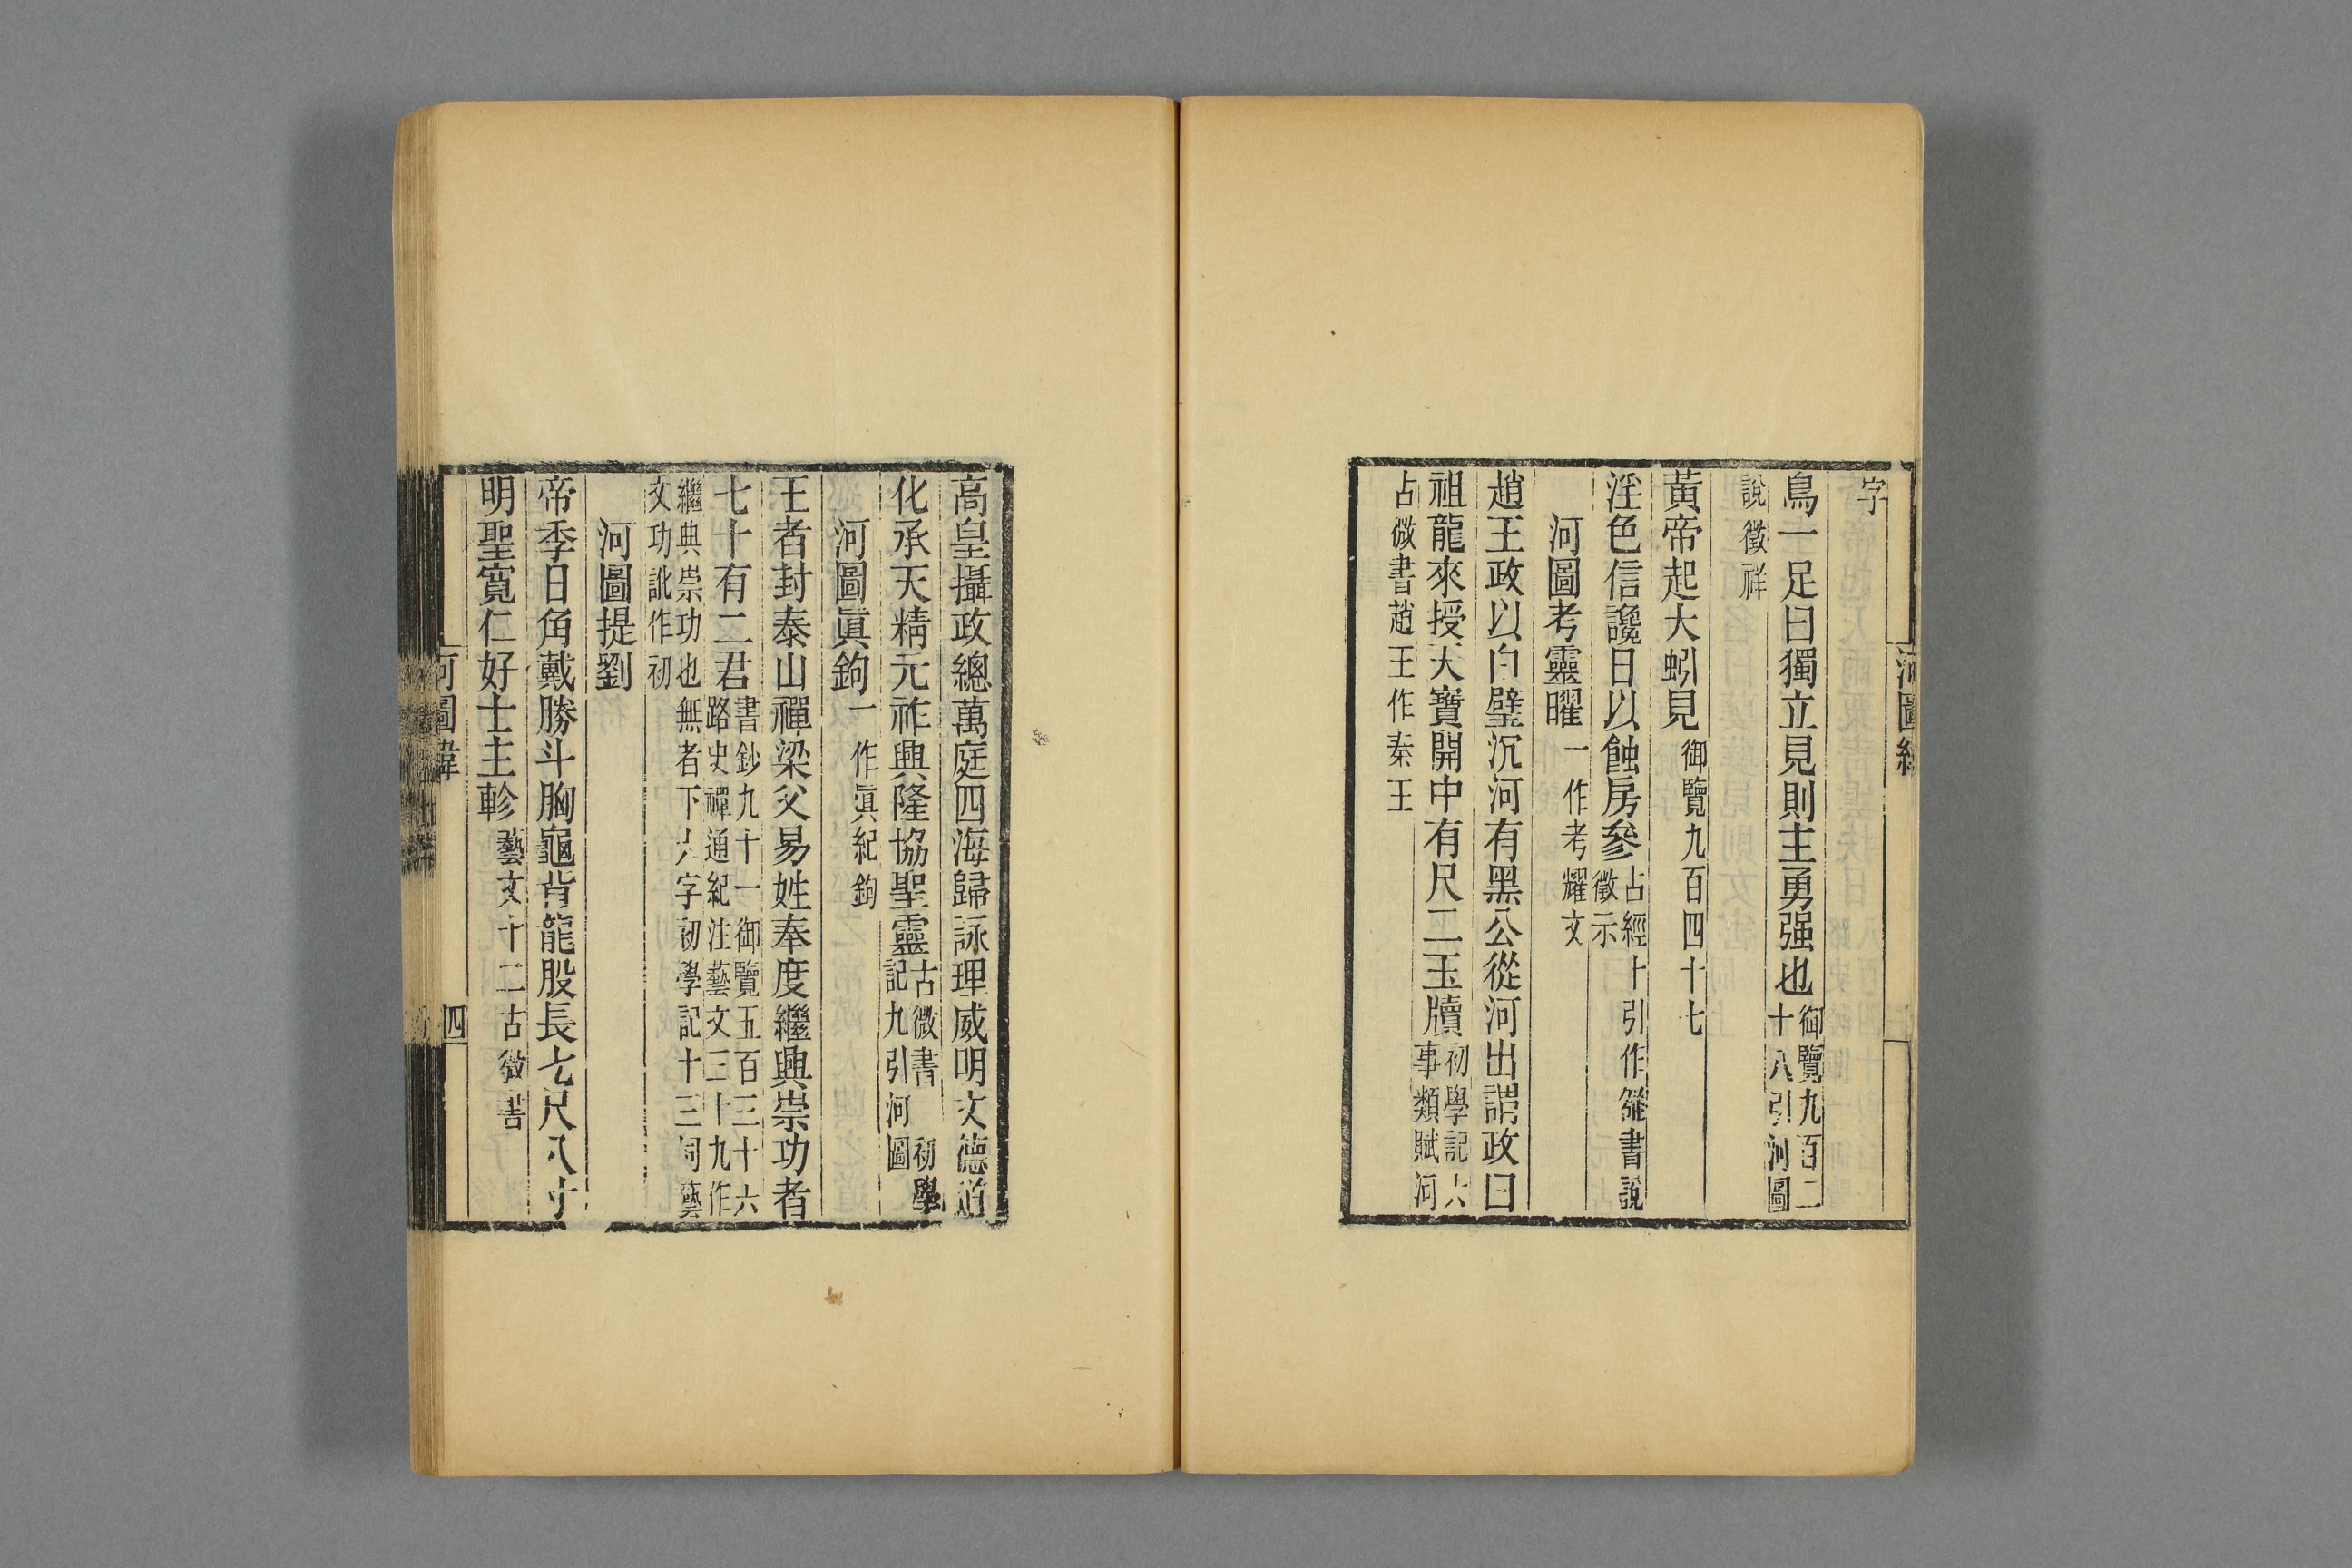 字
鳥一足曰獨立見則主勇强也御覽九百二十八引河圖
說徵祥
黃帝起大蚓見御覽九百四十七
淫色信讒日以蝕房參占經十引作緯書說徵示
河圖考靈曜一作考耀文
趙王政以白璧沉河有黑公從河出謂政曰
祖龍來授天寶開中有尺二玉牘初學記六事類賦河
占微書趙王作秦王
高皇攝政總萬庭四海歸詠理威明文德道
化承天精元祚興隆協聖靈古微書 初學記九引河圖
河圖眞鉤一作眞紀鉤
王者封泰山禪梁父易姓奉度繼興崇功者
七十有二君書鈔九十一御覽五百三十六路史禪通紀注藝文三十九作
繼典崇功也無者下六字初學記十三同藝文功訛作初
河圖提劉
帝季日角戴勝斗胸龜背龍股長七尺八寸
明聖寬仁好士主軫藝文十二古微書
河圖緯
四